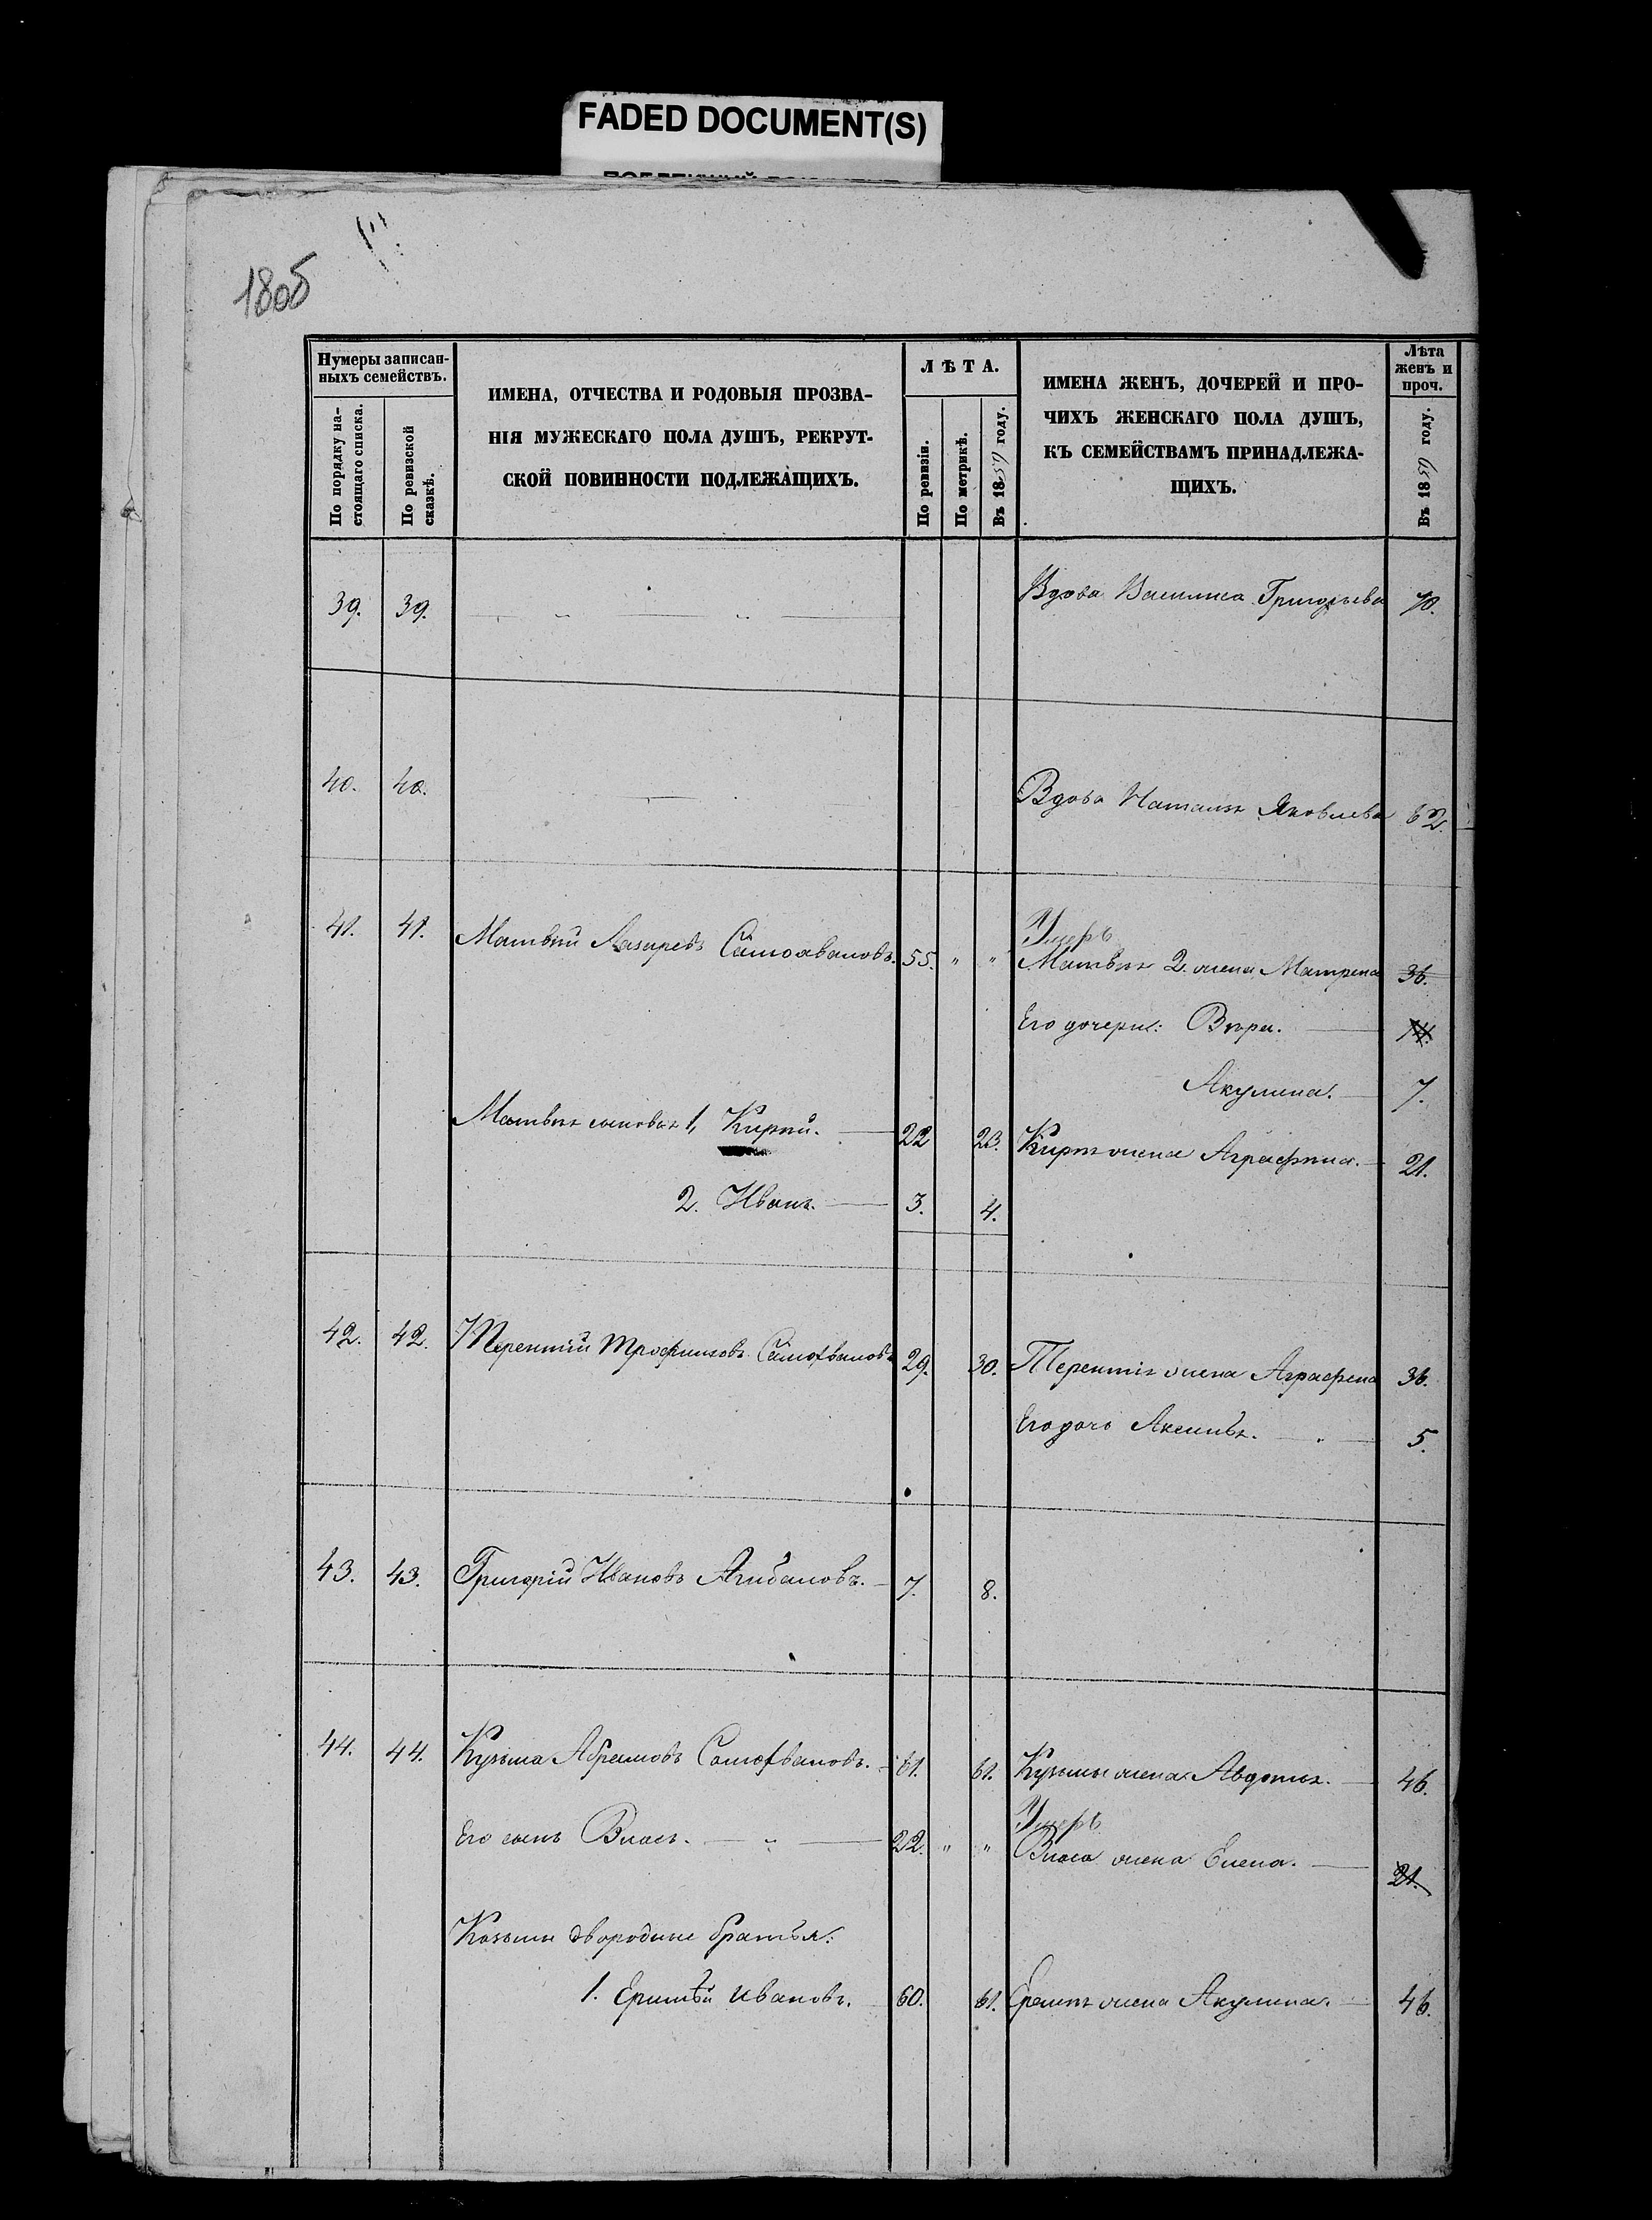 FADED DOCUMENT(S)
180б
Нумеры записан-
ныхъ семействъ.
По порядку на-
стоящаго списка.
По ревизской
сказкѣ.
ИМЕНА, ОТЧЕСТВА И РОДОВЫЯ ПРОЗВА-
НІЯ МУЖЕСКАГО ПОЛА ДУШЪ, РЕКРУТ-
СКОЙ ПОВИННОСТИ ПОДЛЕЖАЩИХЪ.
ЛѢТА.
По ревизіи.
По метрикѣ.
Въ 1859 году.
ИМЕНА ЖЕНЪ, ДОЧЕРЕЙ И ПРО-
ЧИХЪ ЖЕНСКАГО ПОЛА ДУШЪ,
КЪ СЕМЕЙСТВАМЪ ПРИНАДЛЕЖА-
ЩИХЪ.
Лѣта
женъ и
проч.
Въ 1859 году.
39. 39. Вдова Василиса Григорьева 70.
40. 40. Вдова Наталья Яковлева 62.
Умеръ
41. 41. Матвѣй Лазаревъ 55. " " Матвѣя 2. жена Матрена 36.
Его дочери: Вѣра. 14.
Акулина. 7.
Матвѣя сыновья 1, Кирѣй. 22 23. Кирѣя жена Аграфѣна. 21.
2. Иванъ. 3. 4.
42. 42. Терентій Трофимовъ 29. 30. Терентія жена Аграфена 36.
Его дочь Аксинья. 5.
43. 43. Григорій Ивановъ 7. 8.
44. 44. Кузьма Абрамовъ 61. 61. Кузьмы жена Авдотья. 46.
Умеръ
Его сынъ Власъ. 22. " " Власа жена Елена. 21.
Козьмы двородные братья:
1. Еримѣй Ивановъ. 60. 61. жена Акулина. 46.